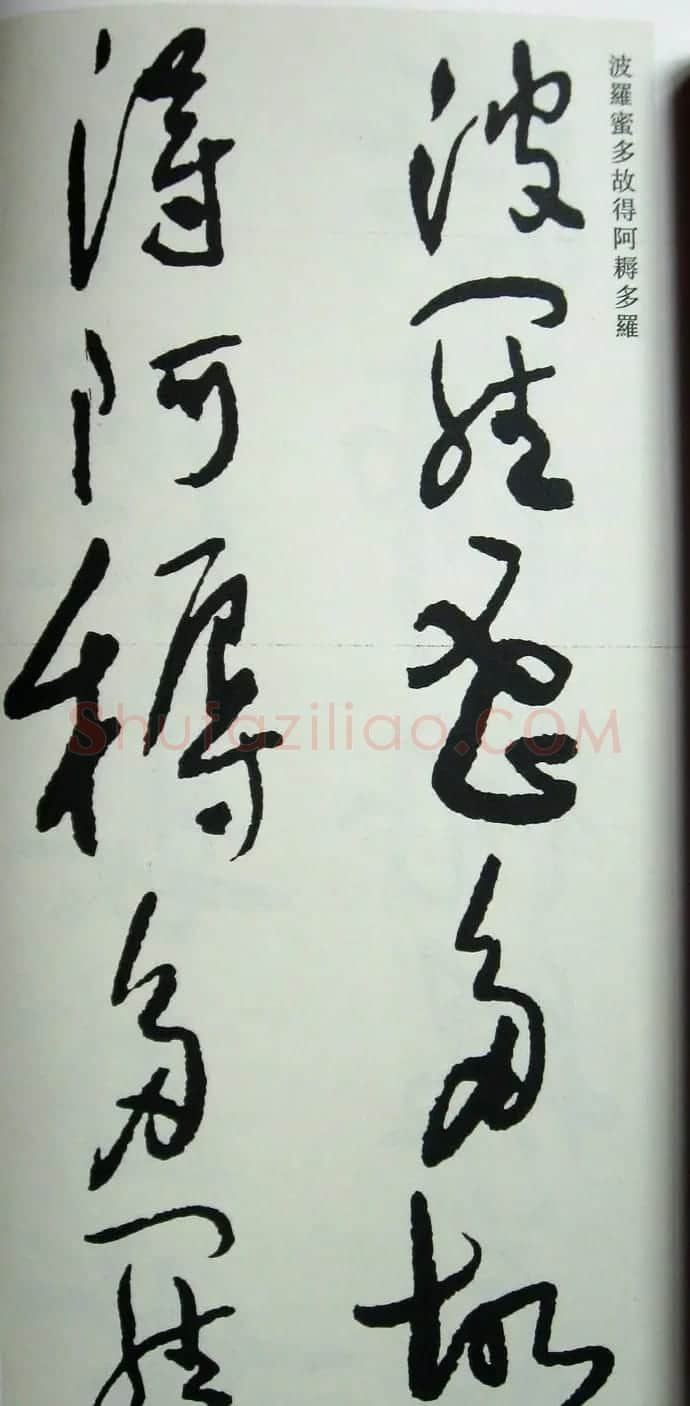 波羅蜜多故得阿耨多羅
波羅蜜多故
得阿耨多羅
Shufaziliao.COM